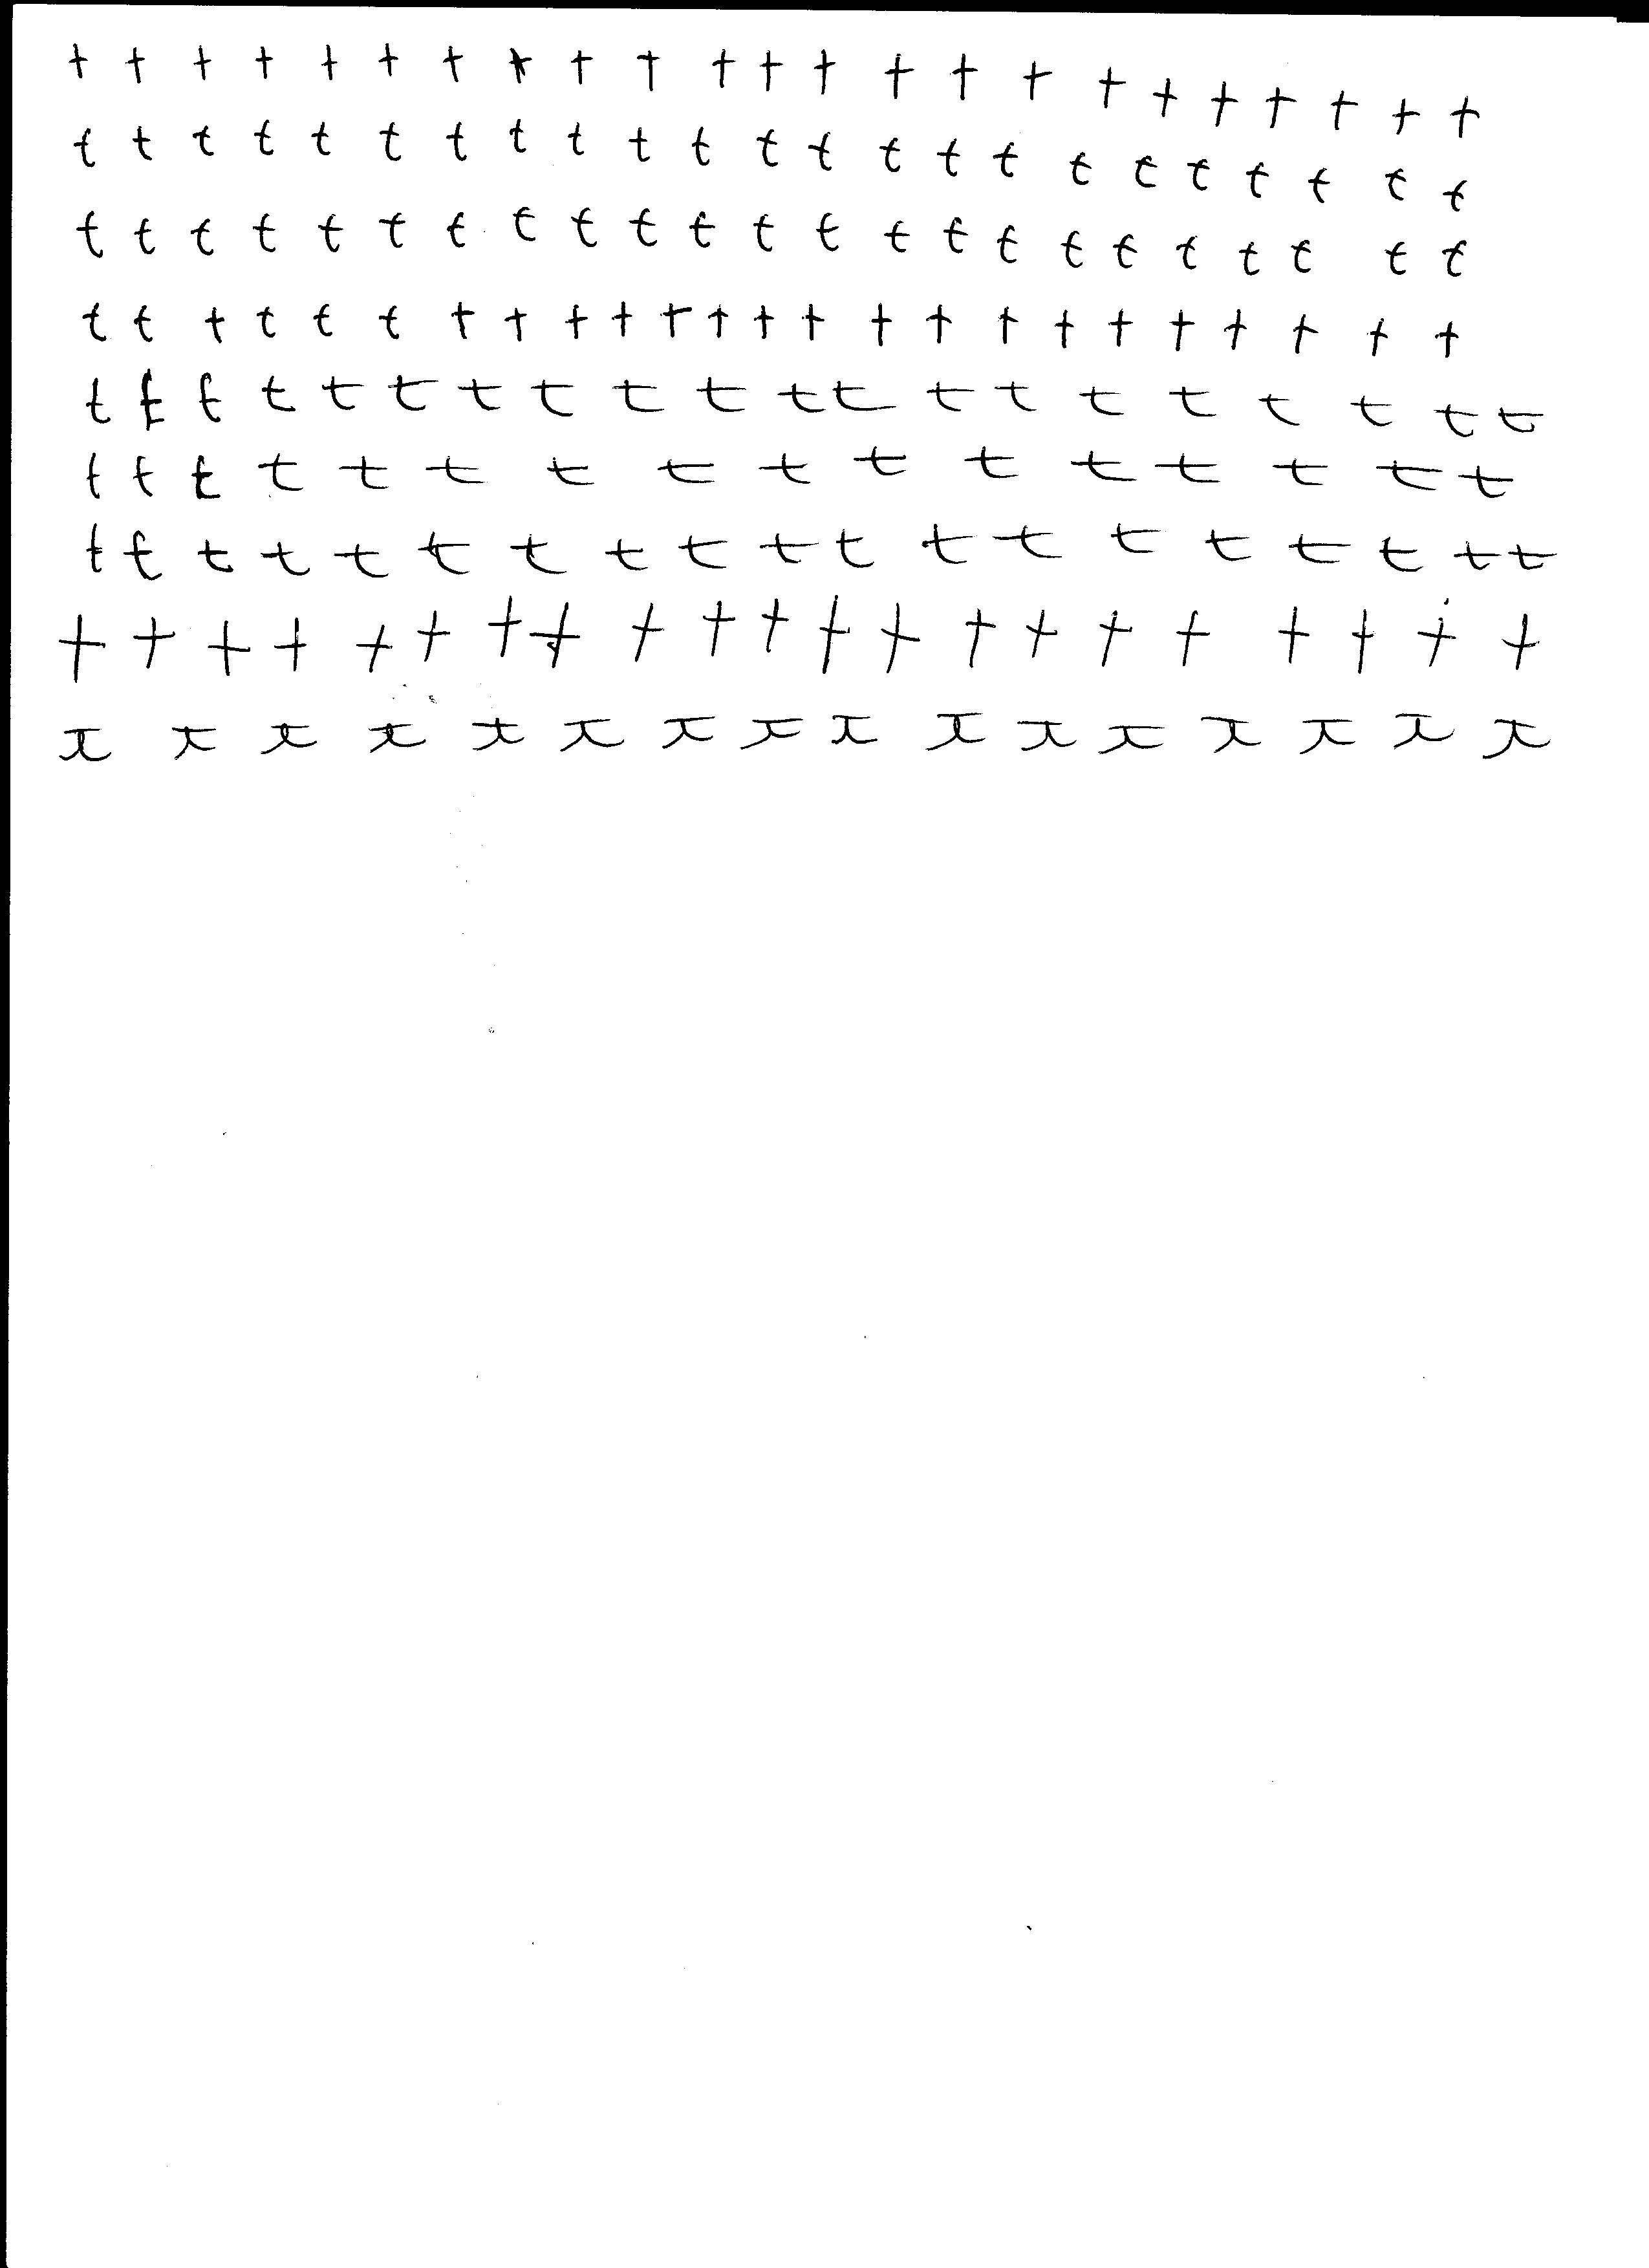 t t t t t t t t t t t t t t t t t t t t t t t
t t t t t t t t t t t t t t t t t t t t t t t
t t t t t t t t t t t t t t t t t t t t t t t
t t t t t t t t t t t t t t t t t t t t t t t t
t t t t t t t t t t t t t t t t t t t t
t t t t t t t t t t t t t t t t
t t t t t t t t t t t t t t t t t t t
t t t t t t t t t t t t t t t t t t t t t
t t t t t t t t t t t t t t t t